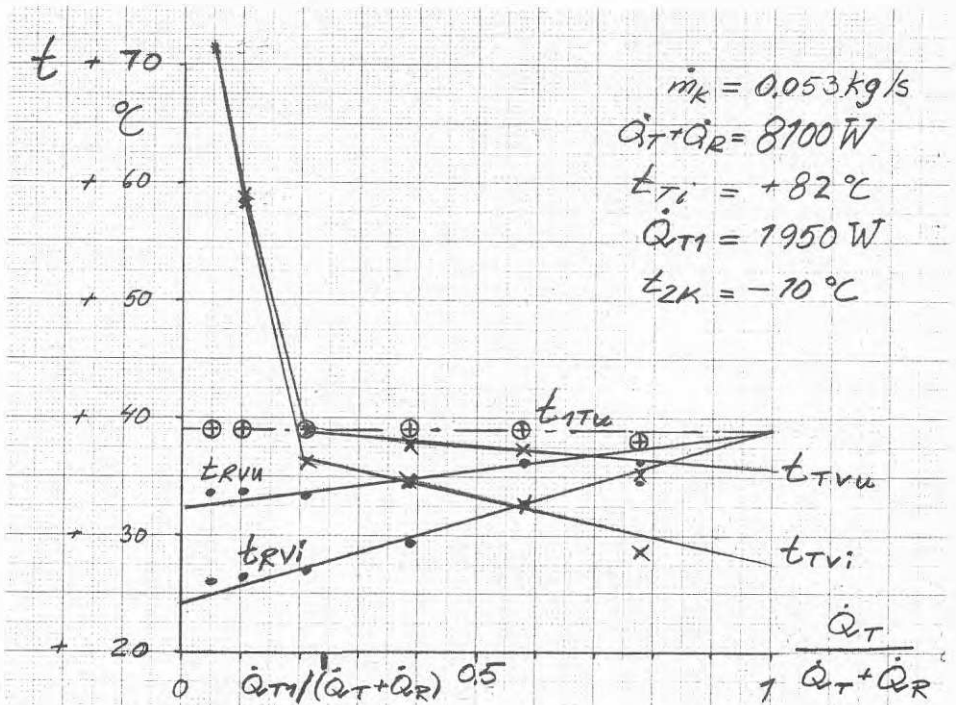 t + 70
°C
+ 60
+ 50
+ 40
+ 30
+ 20
ṁK = 0.053 kg/s
Q̇T+Q̇R = 8100 W
tTi = +82 °C
Q̇T1 = 1950 W
t2K = -10 °C
t1Tu
tRVu
tTVu
tRVi
tTVi
0
Q̇T1/(Q̇T+Q̇R)
0,5
1
Q̇T
Q̇T+Q̇R